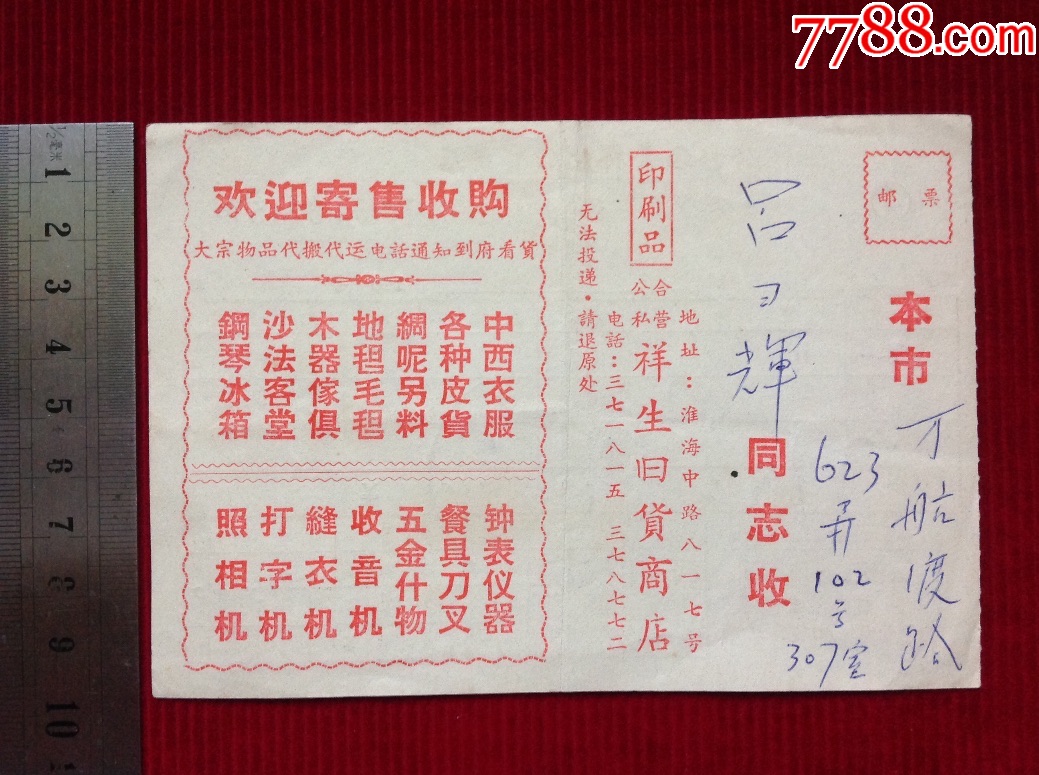 7788.com
邮票
本市
万航渡路
623弄102号
307室
吕习輝
同志收
印刷品
公私合营祥生旧貨商店
地址：淮海中路八一七号
电話：三七一八一五 三七八七七二
无法投递·請退原处
欢迎寄售收购
大宗物品代搬代运电話通知到府看貨
中西衣服
各种皮貨
綢呢另料
地毯毛毯
木器傢俱
沙法客堂
鋼琴冰箱
钟表仪器
餐具刀叉
五金什物
收音机
縫衣机
打字机
照相机
1/2毫米
1
2
3
4
5
6
7
8
9
10